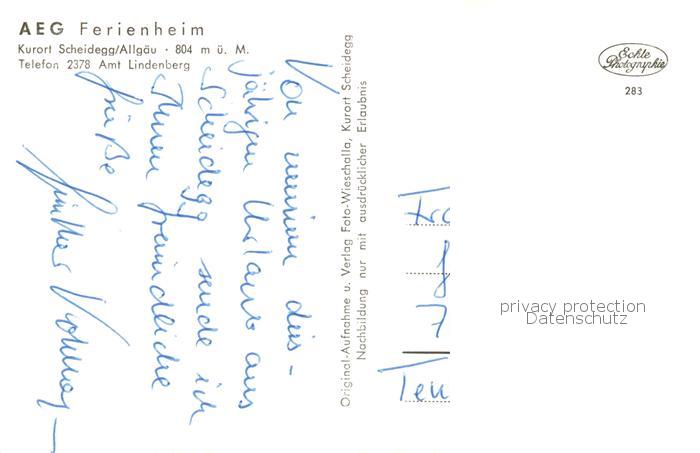 AEG Ferienheim
Kurort Scheidegg/Allgäu · 804 m ü. M.
Telefon 2378 Amt Lindenberg
Von meinem dies-
jährigen Urlaub aus
Scheidegg sende ich
Ihnen freundliche
Grüße
Günther
Original-Aufnahme u. Verlag Foto-Wieschalla, Kurort Scheidegg
Nachbildung nur mit ausdrücklicher Erlaubnis
Echte
Photographie
283
8
7
privacy protection
Datenschutz